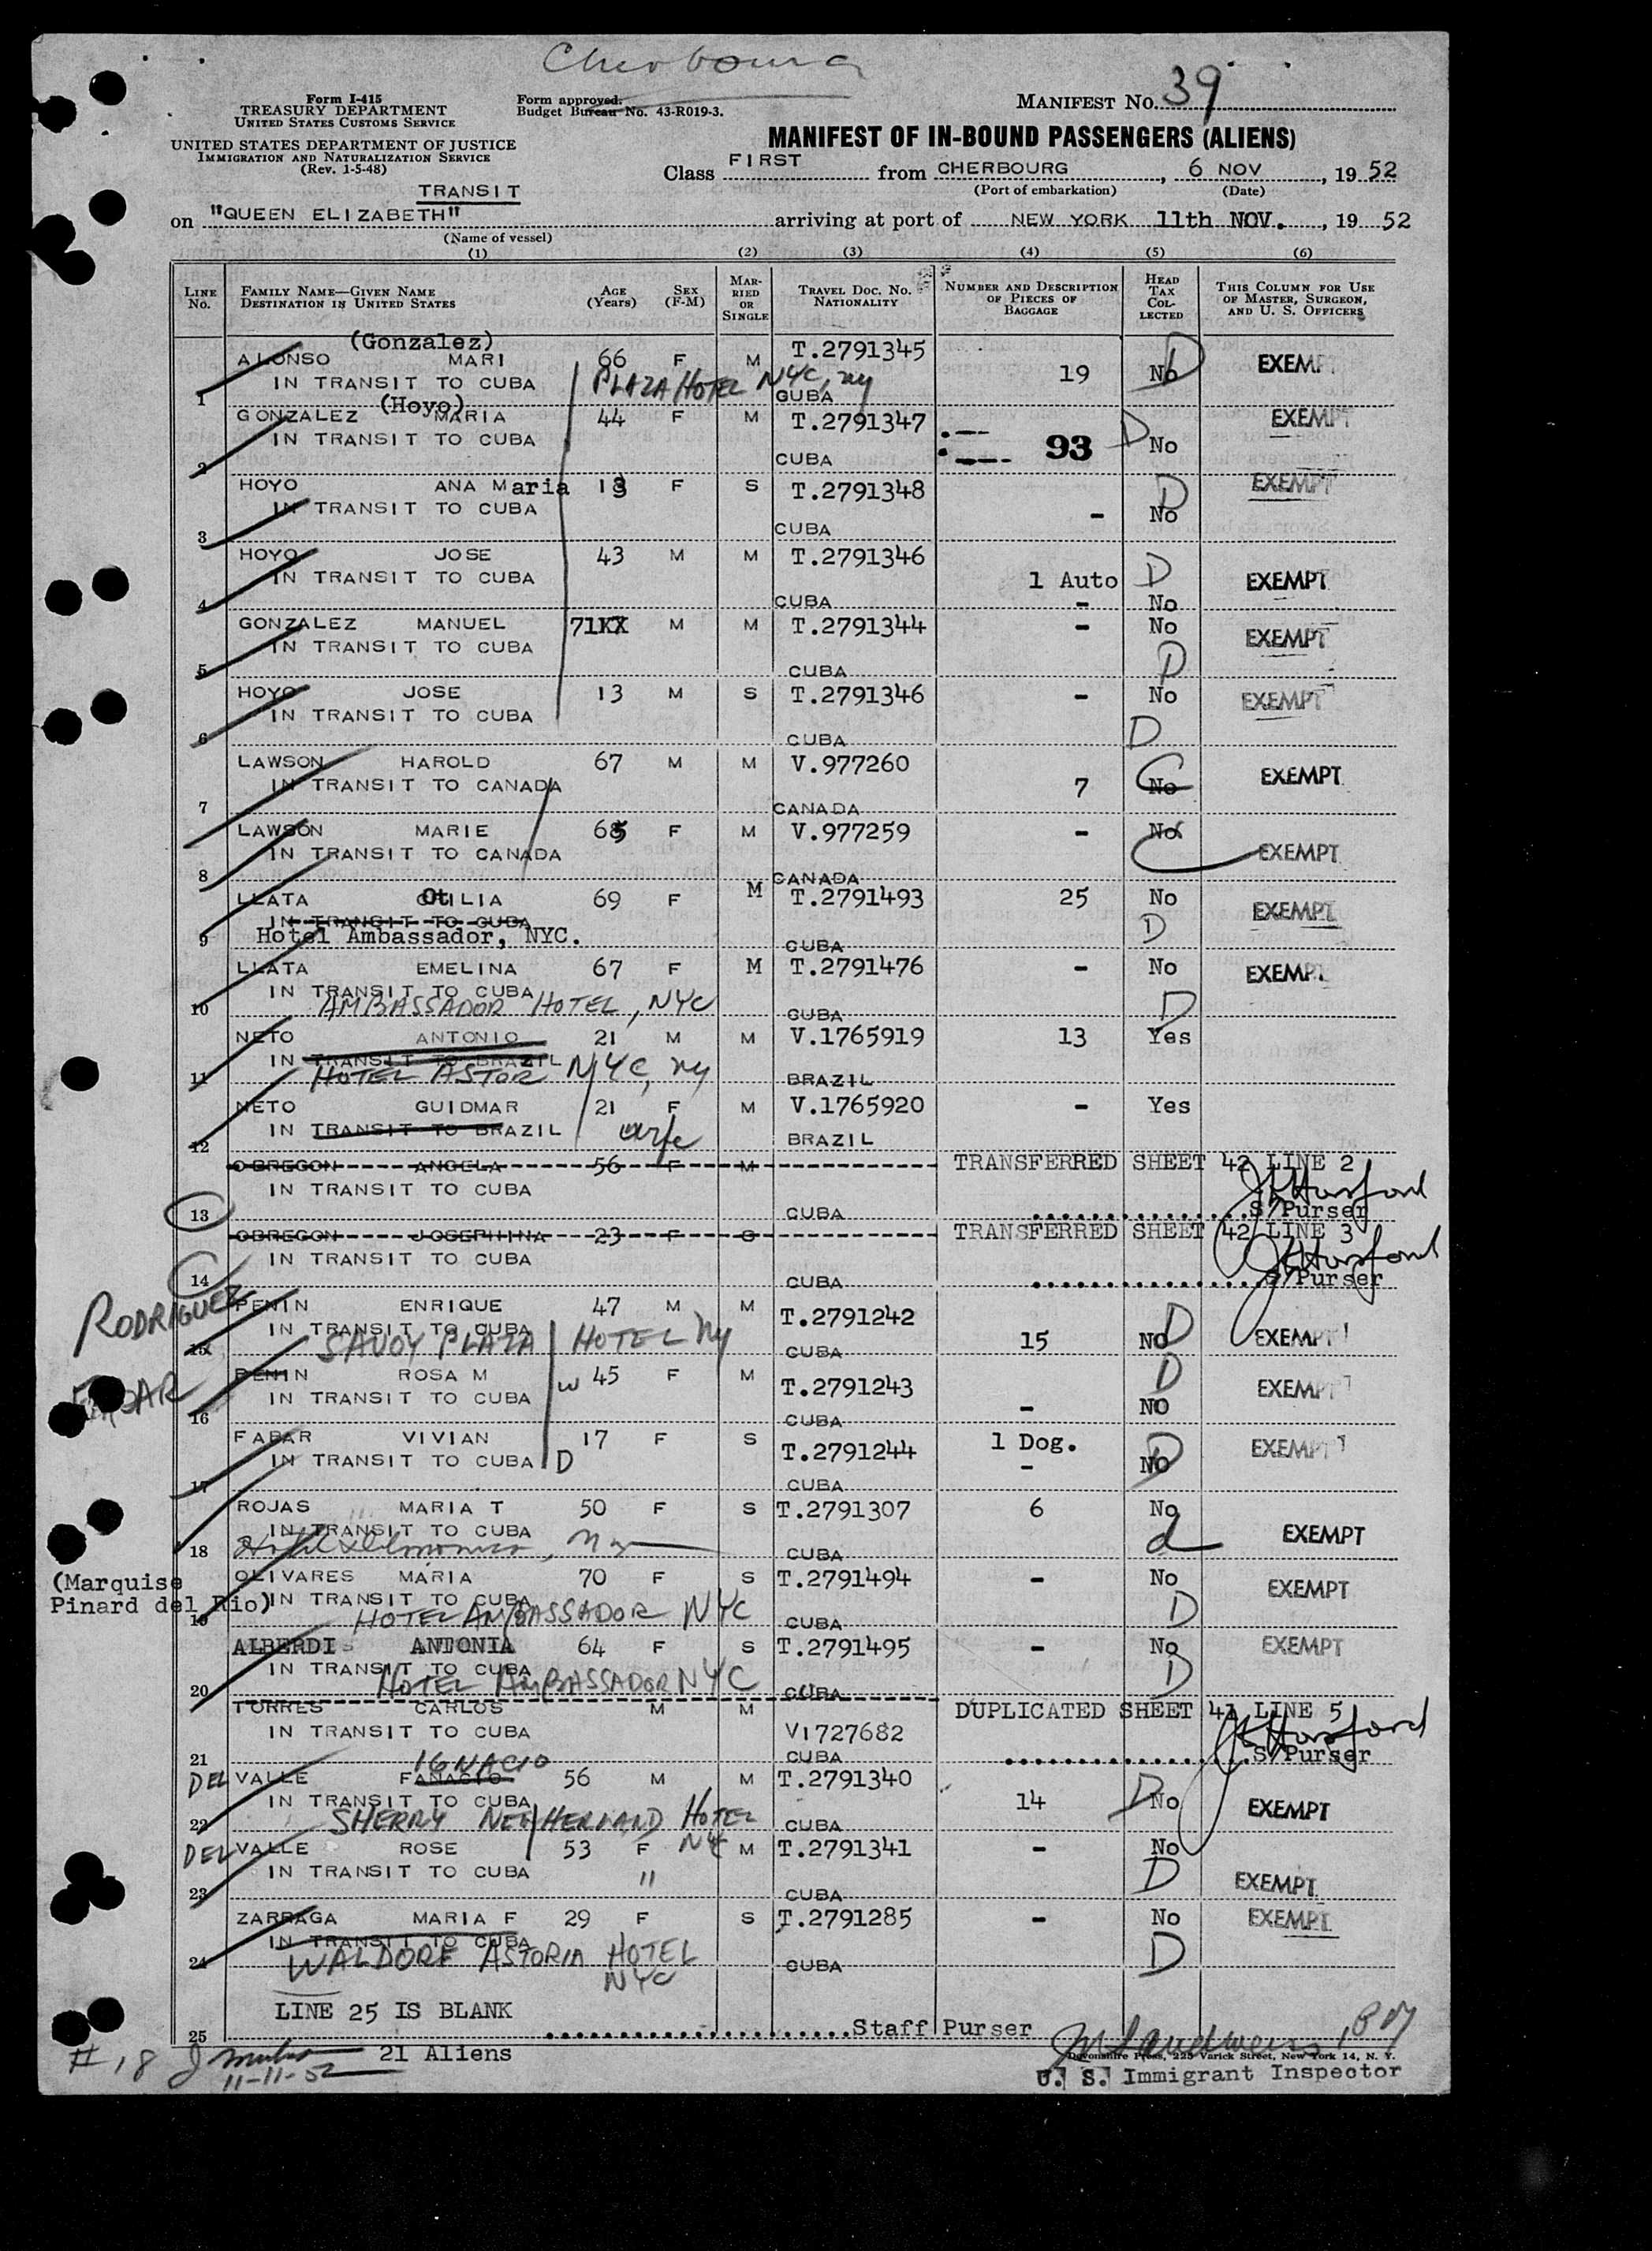 Cherbourg
Form I-415
TREASURY DEPARTMENT
UNITED STATES CUSTOMS SERVICE
UNITED STATES DEPARTMENT OF JUSTICE
IMMIGRATION AND NATURALIZATION SERVICE
(Rev. 1-5-48)
Form approved.
Budget Bureau No. 43-R019-3.
MANIFEST No. 39
MANIFEST OF IN-BOUND PASSENGERS (ALIENS)
Class FIRST from CHERBOURG, 6 NOV, 19 52
(Port of embarkation) (Date)
TRANSIT
on "QUEEN ELIZABETH" arriving at port of NEW YORK 11th NOV., 19 52
(Name of vessel)
(1) (2) (3) (4) (5) (6)
LINE No. FAMILY NAME—GIVEN NAME DESTINATION IN UNITED STATES AGE (Years) SEX (F-M) MARRIED OR SINGLE TRAVEL DOC. No. NATIONALITY NUMBER AND DESCRIPTION OF PIECES OF BAGGAGE HEAD TAX COLLECTED THIS COLUMN FOR USE OF MASTER, SURGEON, AND U. S. OFFICERS
(Gonzalez)
ALONSO MARI 66 F M T.2791345 19 No D EXEMPT
IN TRANSIT TO CUBA PLAZA HOTEL NYC, NY
1 CUBA
(Hoyo)
GONZALEZ MARIA 44 F M T.2791347 93 D No EXEMPT
IN TRANSIT TO CUBA
2 CUBA
HOYO ANA Maria 13 F S T.2791348 - D No EXEMPT
IN TRANSIT TO CUBA
3 CUBA
HOYO JOSE 43 M M T.2791346 1 Auto D EXEMPT
IN TRANSIT TO CUBA
4 CUBA - No
GONZALEZ MANUEL 71 M M T.2791344 - No EXEMPT
IN TRANSIT TO CUBA D
5 CUBA
HOYO JOSE 13 M S T.2791346 - No EXEMPT
IN TRANSIT TO CUBA D
6 CUBA
LAWSON HAROLD 67 M M V.977260 7 No C EXEMPT
IN TRANSIT TO CANADA
7 CANADA
LAWSON MARIE 65 F M V.977259 - No C EXEMPT
IN TRANSIT TO CANADA
8 CANADA
LLATA OtILIA 69 F M T.2791493 25 No EXEMPT
IN TRANSIT TO CUBA D
9 Hotel Ambassador, NYC. CUBA
LLATA EMELINA 67 F M T.2791476 - No EXEMPT
IN TRANSIT TO CUBA
10 AMBASSADOR HOTEL, NYC CUBA D
NETO ANTONIO 21 M M V.1765919 13 Yes
IN TRANSIT TO BRAZIL
11 HOTEL ASTOR NYC, NY BRAZIL
NETO GUIDMAR 21 F M V.1765920 - Yes
IN TRANSIT TO BRAZIL wife BRAZIL
12
OBREGON ANGELA 56 F M TRANSFERRED SHEET 42 LINE 2
IN TRANSIT TO CUBA
13 CUBA S/Purser
OBREGON JOSEPHINA 23 F S TRANSFERRED SHEET 42 LINE 3
IN TRANSIT TO CUBA
14 CUBA S/Purser
RODRIGUEZ
PENIN ENRIQUE 47 M M T.2791242 15 NO D EXEMPT
IN TRANSIT TO CUBA
15 SAVOY PLAZA HOTEL NY CUBA
PENIN ROSA M W 45 F M T.2791243 D EXEMPT
IN TRANSIT TO CUBA - NO
16 CUBA
FABAR VIVIAN 17 F S T.2791244 1 Dog. D EXEMPT
IN TRANSIT TO CUBA D - NO
17 CUBA
ROJAS MARIA T 50 F S T.2791307 6 No EXEMPT
IN TRANSIT TO CUBA d
18 Hotel Delmonico, Ny CUBA
(Marquise
Pinard del Rio)
OLIVARES MARIA 70 F S T.2791494 - No EXEMPT
IN TRANSIT TO CUBA D
19 HOTEL AMBASSADOR NYC CUBA
ALBERDI ANTONIA 64 F S T.2791495 - No EXEMPT
IN TRANSIT TO CUBA D
20 HOTEL AMBASSADOR NYC CUBA
TORRES CARLOS M M DUPLICATED SHEET 41 LINE 5
IN TRANSIT TO CUBA V1727682
21 CUBA S/Purser
IGNACIO
DEL VALLE FANACIO 56 M M T.2791340 14 D No EXEMPT
IN TRANSIT TO CUBA
22 SHERRY NETHERLAND HOTEL NYC CUBA
DEL VALLE ROSE 53 F M T.2791341 - No
IN TRANSIT TO CUBA " D EXEMPT
23 CUBA
ZARRAGA MARIA F 29 F S T.2791285 - No EXEMPT
IN TRANSIT TO CUBA D
24 WALDORF ASTORIA HOTEL CUBA
NYC
LINE 25 IS BLANK
25 Staff Purser
# 18 21 Aliens
11-11-52
Devonshire Press, 225 Varick Street, New York 14, N. Y.
U. S. Immigrant Inspector